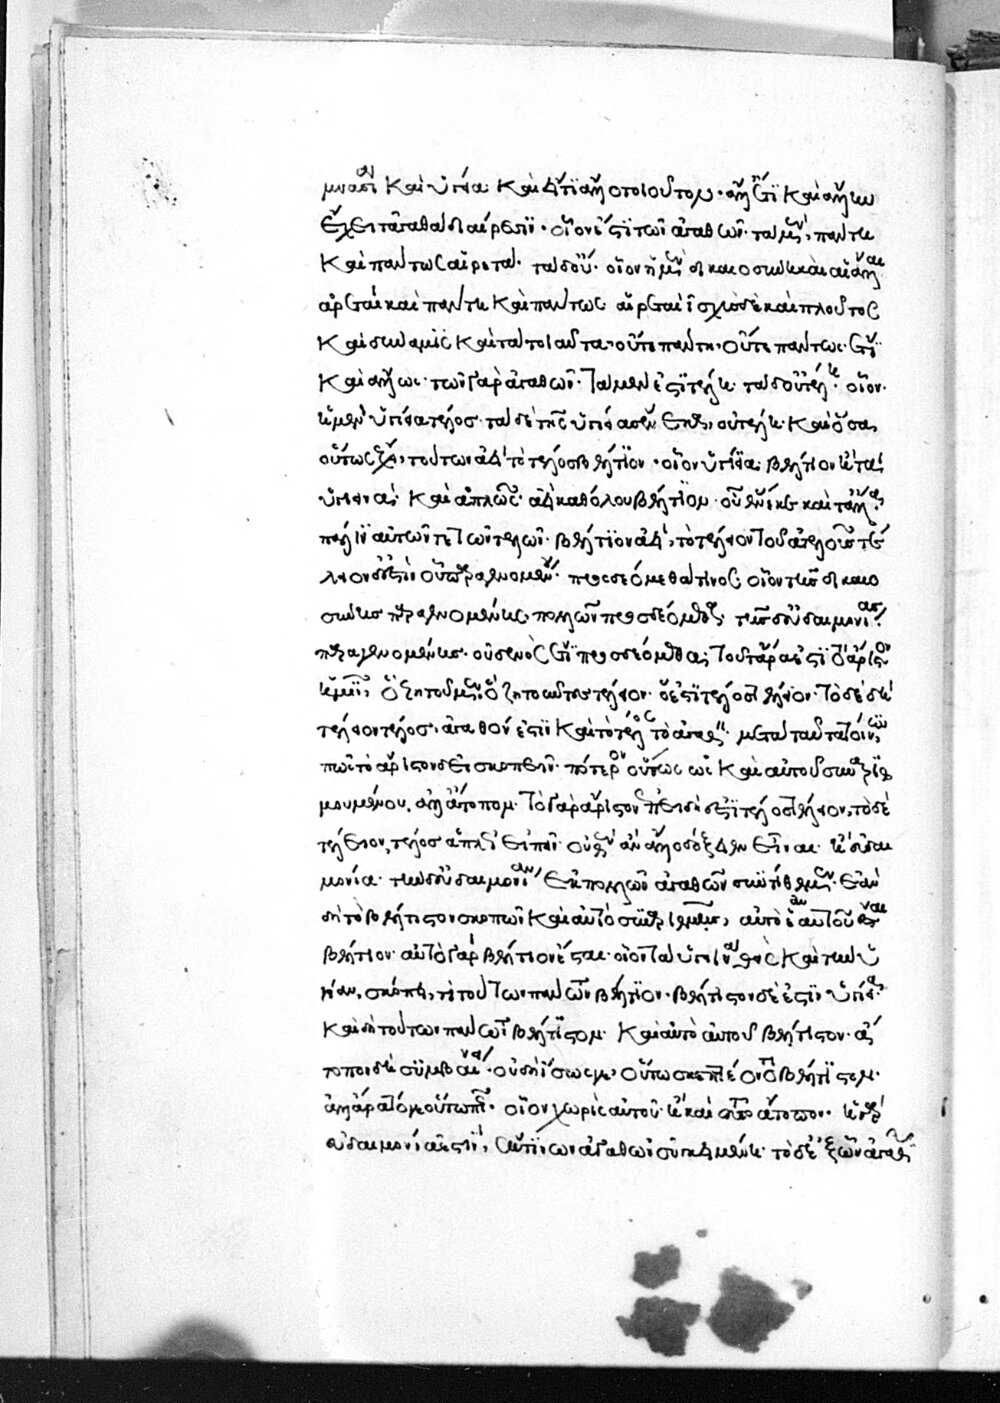 μνασία καὶ ὑγίεια καὶ εἴ τι ἄλλο τοιοῦτον· ἀλλ' ἔτι καὶ ἄλλην
ἔχει τἀγαθὰ διαίρεσιν· οἷον ἐστὶ τῶν ἀγαθῶν· τὰ μὲν, πάντη
καὶ πάντως αἱρετά· τὰ δ' οὔ· οἷον ἡ μὲν δικαιοσύνη καὶ αἱ ἄλλαι
ἀρεταὶ καὶ πάντη καὶ πάντως αἱρεταὶ ἰσχὺς δὲ καὶ πλοῦτος
καὶ δύναμις καὶ τὰ τοιαῦτα· οὔτε πάντη· οὔτε πάντως· ἔτι
καὶ ἄλλως· τῶν γὰρ ἀγαθῶν· τὰ μέν ἐστι τέλη· τὰ δ' οὐ τέλη· οἷον·
ἡ μὲν ὑγίεια τέλος· τὰ δὲ τῆς ὑγιείας ἕνεκα, οὐ τέλη· καὶ ὅσα,
οὕτως ἔχει, τούτων ἀεὶ τὸ τέλος βέλτιον· οἷον ὑγίεια βέλτιον ἢ τὰ
ὑγιεινά· καὶ ἁπλῶς· ἀεὶ καθόλου βέλτιον· οὗ ἕνεκε καὶ τἆλλα·
πάλιν αὐτῶν τε τῶν τελῶν· βέλτιον ἀεὶ, τὸ τέλειον τοῦ ἀτελοῦς τέ
λειον δ' ἐστὶν οὗ παραγενομένου· προσδεόμεθα τινός· οἷον τῆς δικαιο
σύνης παραγενομένης· πολλῶν προσδεόμεθα· τῆς δ' εὐδαιμονίας
παραγενομένης· οὐδενὸς ἔτι προσδεόμεθα· τοῦτ' ἄρα ἐστὶ τὸ ἄριστον
ἡμῖν, ὃ ζητοῦμεν· ὃ ζητοῦντες τέλειον· ὅ ἐστι τέλος τέλειον· τὸ δὲ δὴ
τέλειον τέλος· ἀγαθόν ἐστι καὶ τὸ τέλος τὸ ἀγαθόν· μετὰ ταῦτα τοίνυν,
πῶς τὸ ἄριστον δεῖ σκοπεῖν· πότερον οὕτως ὡς καὶ αὐτοῦ συναριθ
μουμένου, ἀλλ' ἄτοπον· τὸ γὰρ ἄριστον ἐπειδή ἐστι τέλος τέλειον, τὸ δὲ
τέλειον, τέλος ἁπλῶς εἰπεῖν· οὐθὲν ἂν ἄλλο δόξειεν εἶναι· ἢ εὐδαι
μονία· τὴν δ' εὐδαιμονίαν ἐκ πολλῶν ἀγαθῶν συντίθεμεν· ἐὰν
δὴ τὸ βέλτιστον σκοπῶν καὶ αὐτὸ συναριθμῇς, αὐτὸ ἑαυτοῦ ἔσται
βέλτιον· αὐτὸ γὰρ βέλτιον ἔσται· οἷον τὰ ὑγιεινὰ θεὶς καὶ τὴν ὑ
γίειαν, σκόπει, τί τούτων πάντων βέλτιον· βέλτιστον δὲ ἐστὶν ὑγίεια·
καὶ δὴ τούτων πάντων βέλτιστον· καὶ αὐτὸ αὑτοῦ βέλτιστον· ἄ
τοπον δὴ συμβαίνει· οὐ δὴ ἴσως γε, οὕτω σκεπτέον τὸ βέλτιστον·
ἀλλ' ἆρα τό γε οὕτω πως· οἷον χωρὶς αὐτοῦ· ἢ καὶ τοῦτο ἄτοπον· ἡ γὰρ
εὐδαιμονία ἐστὶν, ἔκ τινων ἀγαθῶν συγκειμένη· τὸ δὲ ἐξ ὧν ἀγαθῶν